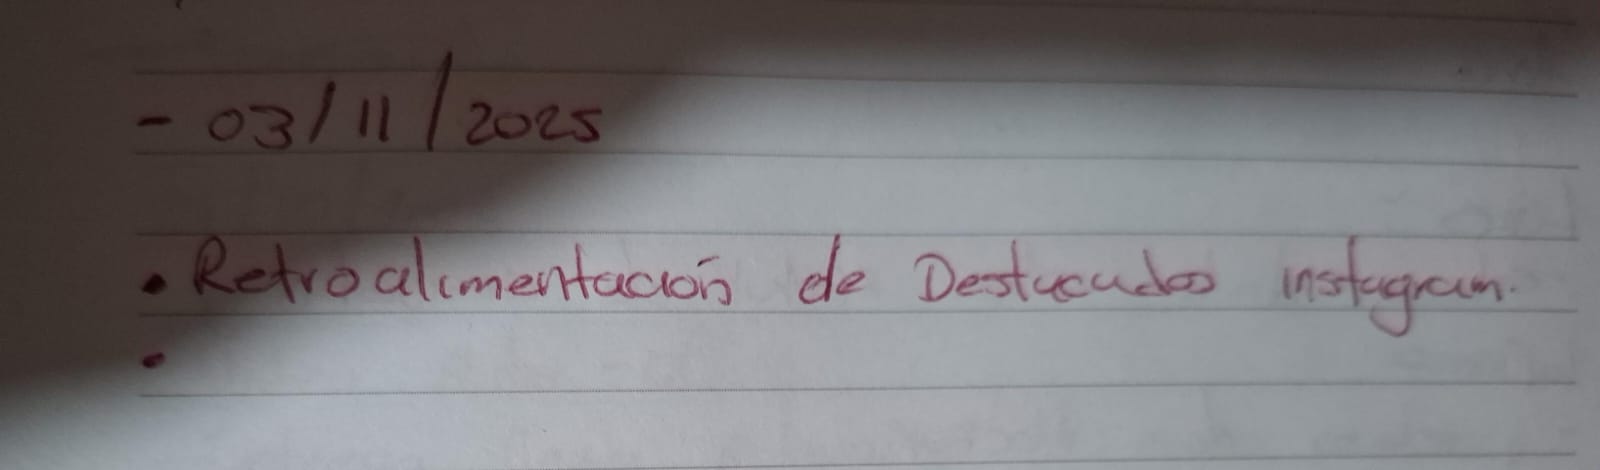 - 03/11/2025
• Retroalimentación de Destacados instagram.
•